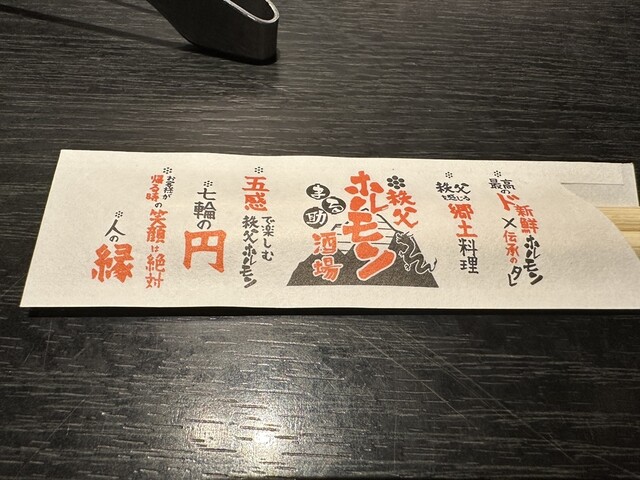 最高のド新鮮ホルモン
×伝承のタレ
秩父を感じる
郷土料理
秩父
ホルモン
酒場
まる助
五感で楽しむ
秩父ホルモン
七輪の円
お客様が
帰る時の笑顔は絶対
人の縁